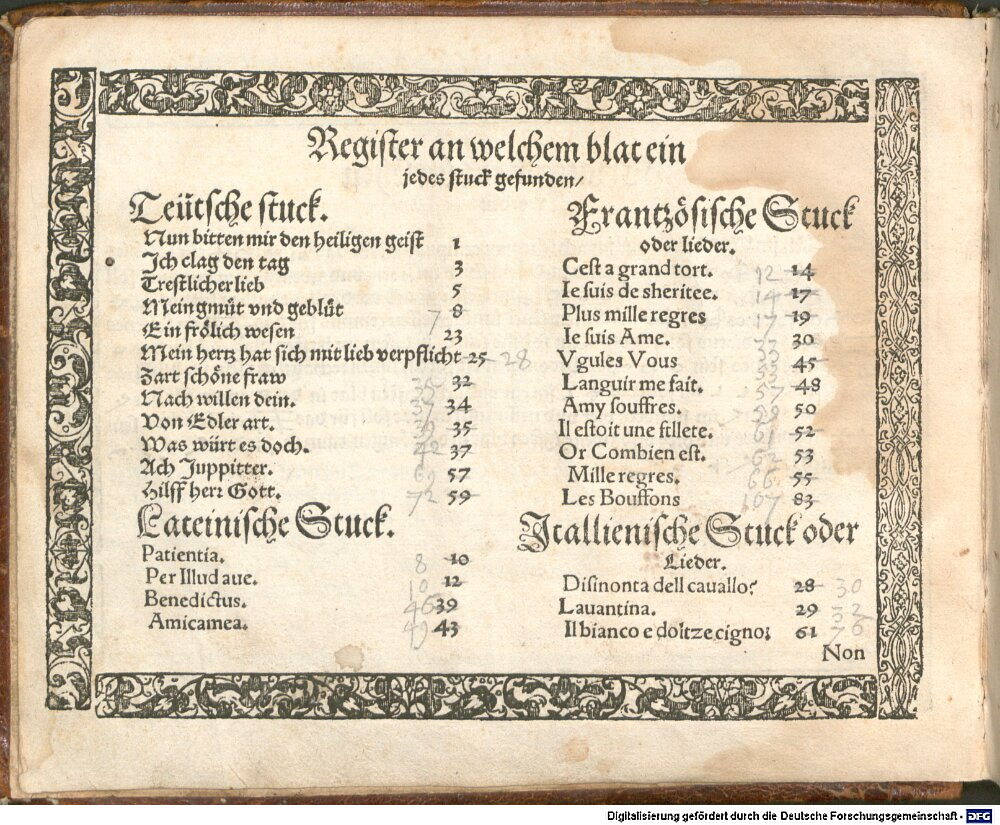 Register an welchem blat ein
jedes stuck gefunden/
Teütsche stuck.
Nun bitten mir den heiligen geist 1
Ich clag den tag 3
Trestlicher lieb 5
Mein gmüt vnd geblüt 7 8
Ein frölich wesen 23
Mein hertz hat sich mit lieb verpflicht 25 28
Zart schöne fraw 32
Nach willen dein. 34
Von Edler art. 37 35
Was würt es doch. 37
Ach Juppitter. 57
Hilff herr Gott. 72 59
Lateinische Stuck.
Patientia. 8 10
Per Illud aue. 10 12
Benedictus. 46 39
Amicamea. 49 43
Frantzösische Stuck
oder lieder.
Cest a grand tort. 12 14
Ie suis de sheritee. 14 17
Plus mille regres 17 19
Ie suis Ame. 30
Vgules Vous 45
Languir me fait. 57 48
Amy souffres. 50
Il estoit une fillete. 61 52
Or Combien est. 62 53
Mille regres. 66 55
Les Bouffons 107 83
Itallienische Stuck oder
Lieder.
Disinonta dell cauallo? 28 30
Lauantina. 29 32
Il bianco e doltze cigno; 61 76
Non
Digitalisierung gefördert durch die Deutsche Forschungsgemeinschaft - DFG